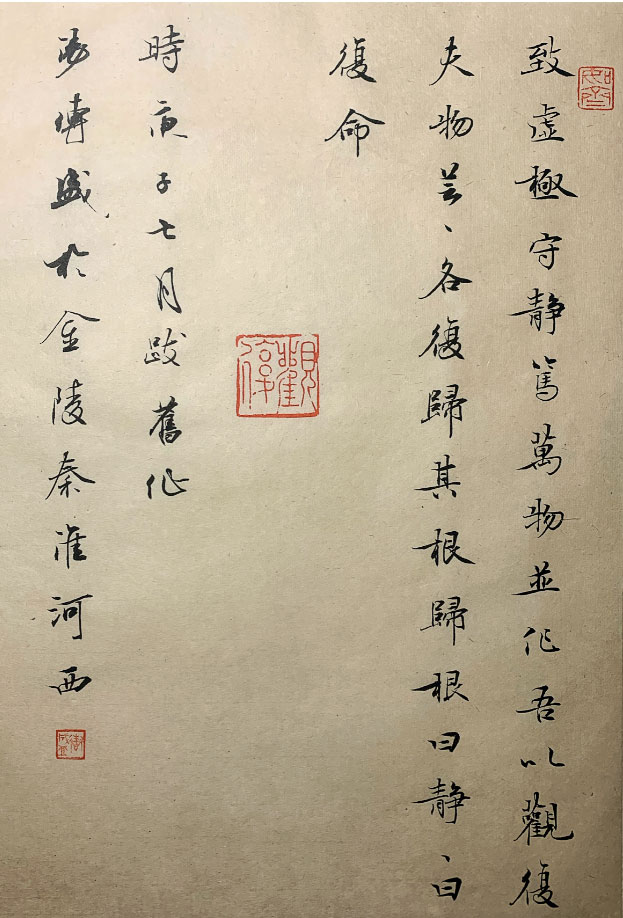 致虛極守静篤萬物並作吾以觀復
夫物芸、各復歸其根歸根曰静、曰
復命
觀復
時庚子七月跋舊作
傳盛於金陵秦淮河西